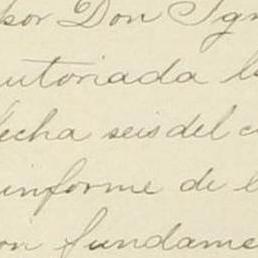 sor Don Ign
utoriada la
fecha seis del c
informe de l
on fundame